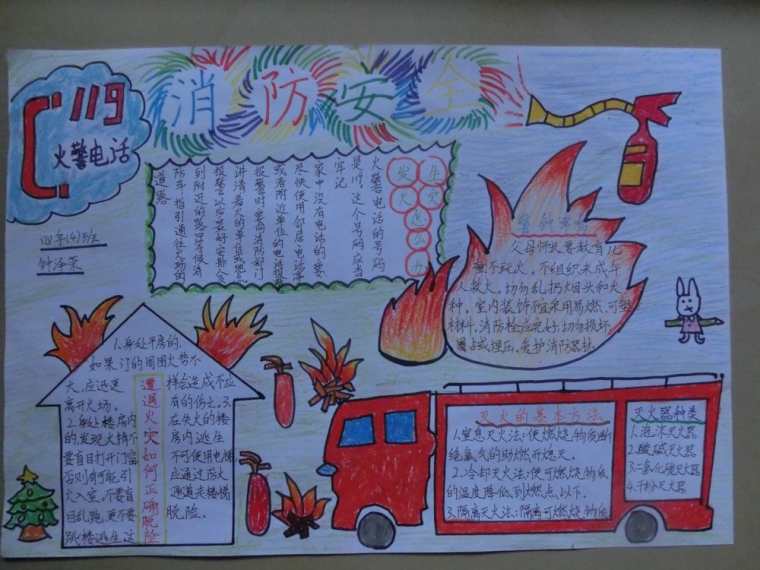 消防安全
119
火警电话
四年(4)班
发生
火灾
怎么办
火警电话的号码
是119,这个号码应当
牢记
家中没有电话的要
尽快使用邻居电话亭
或者附近单位的电话报警
报警时要向消防部门
讲清着火的单位或地点
报警以后最好安排人
到附近的路口等候消
防车,指引通往火场的
道路
警钟长鸣
父母师长要教育儿
童不玩火,不组织未成年
人救火。切勿乱扔烟头和火
种。室内装饰不宜采用易燃、可燃
材料。消防栓应完好,切勿损坏、
圈占或埋压。爱护消防器材
遭遇火灾如何正确脱险
1.身处平房的,
如果门的周围火势不
大,应迅速
离开火场。
2.身处楼房内
的,发现火情不
要盲目打开门窗
否则有可能引
火入室,不要盲
目乱跑,更不要
跳楼逃生这
样会造成不应
有的伤亡。3.
在失火的楼
房内逃生
不可使用电梯
应通过防火
通道走楼梯
脱险。
灭火的基本方法
1.窒息灭火法:使燃烧物质断
绝氧气的助燃而熄灭。
2.冷却灭火法:使可燃烧物质
的温度降低到燃点以下。
3.隔离灭火法:隔离可燃烧物质
灭火器种类
1.泡沫灭火器
2.酸碱灭火器
3.二氧化碳灭火器
4.干粉灭火器